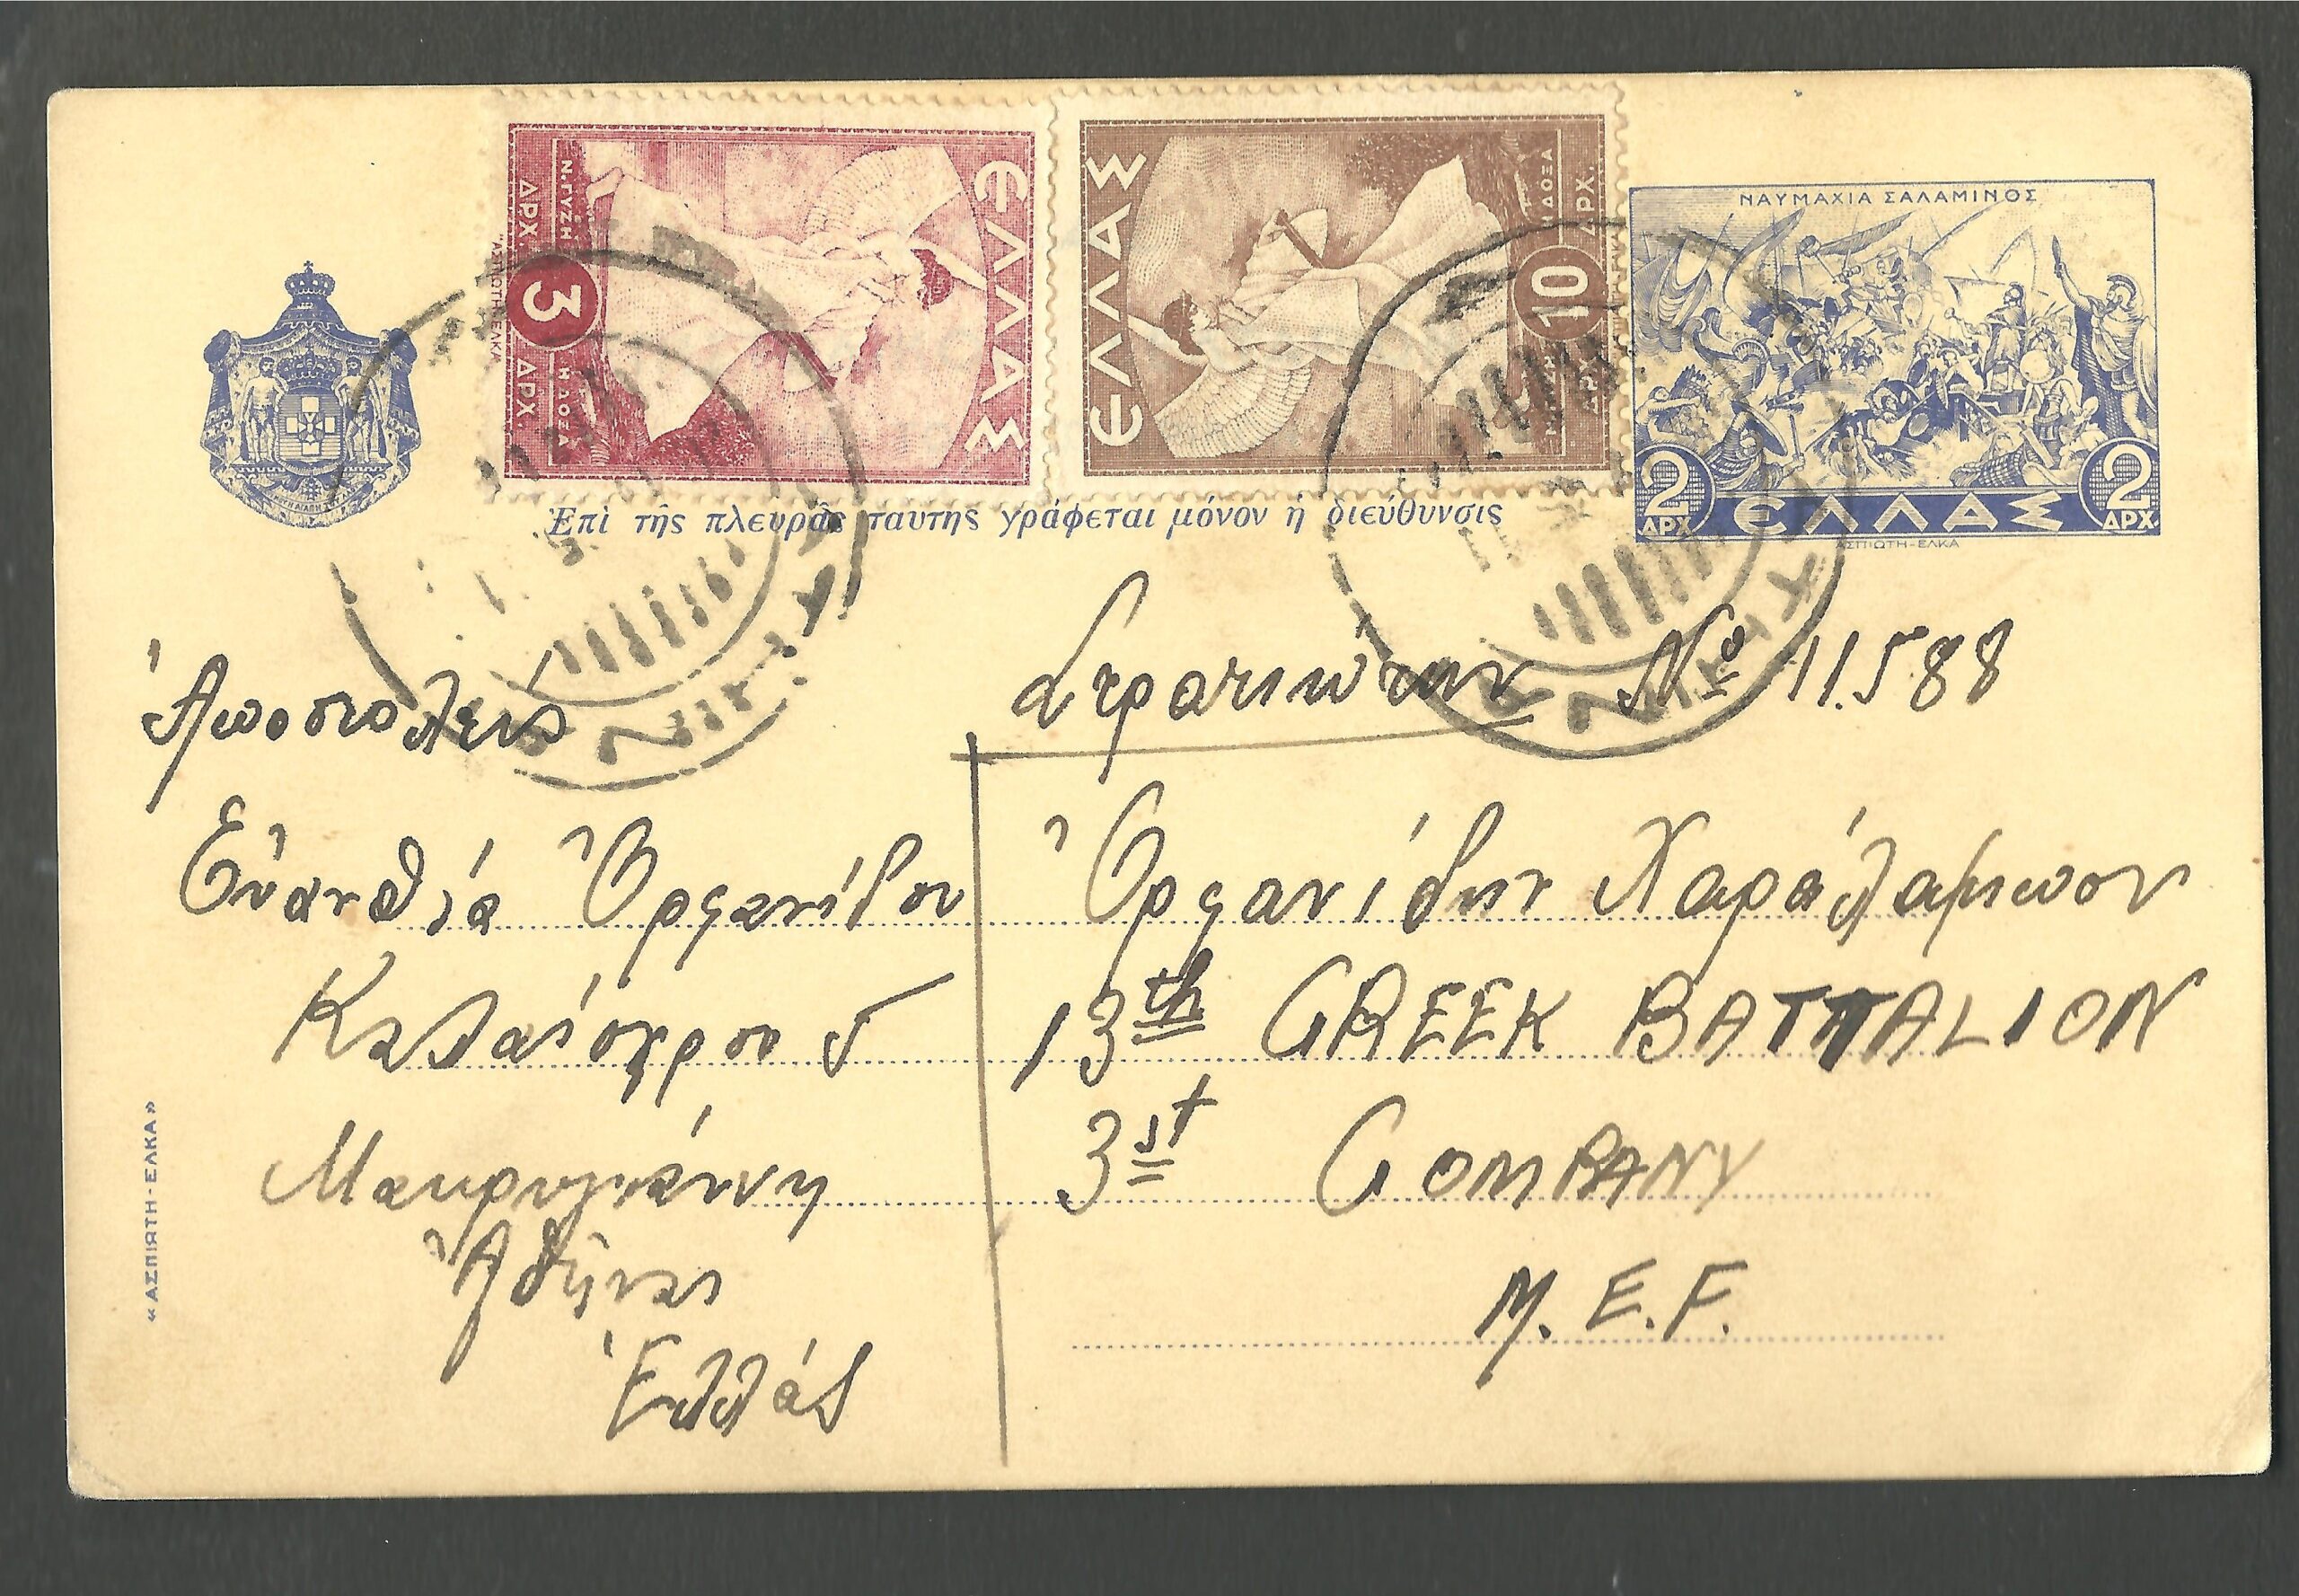 ΕΛΛΑΣ
Ν. ΓΥΖΗ Η ΔΟΞΑ
ΔΡΧ. 3 ΔΡΧ.
"ΑΣΠΙΩΤΗ-ΕΛΚΑ
ΕΛΛΑΣ
Η ΔΟΞΑ
10 ΔΡΧ.
ΝΑΥΜΑΧΙΑ ΣΑΛΑΜΙΝΟΣ
2 ΔΡΧ. ΕΛΛΑΣ 2 ΔΡΧ.
ΑΣΠΙΩΤΗ-ΕΛΚΑ
Ἐπὶ τῆς πλευρᾶς ταύτης γράφεται μόνον ἡ διεύθυνσις
Ἀποστολεύς
Εὐανθία Ὀργανίδου
Μακρυγιάννη
Ἀθήναι
Ἑλλάς
Στρατιώτην Νο 11.588
Ὀργανίδην Χαράλαμπον
13th GREEK BATTALION
3st COMPANY
M. E. F.
«ΑΣΠΙΩΤΗ-ΕΛΚΑ»